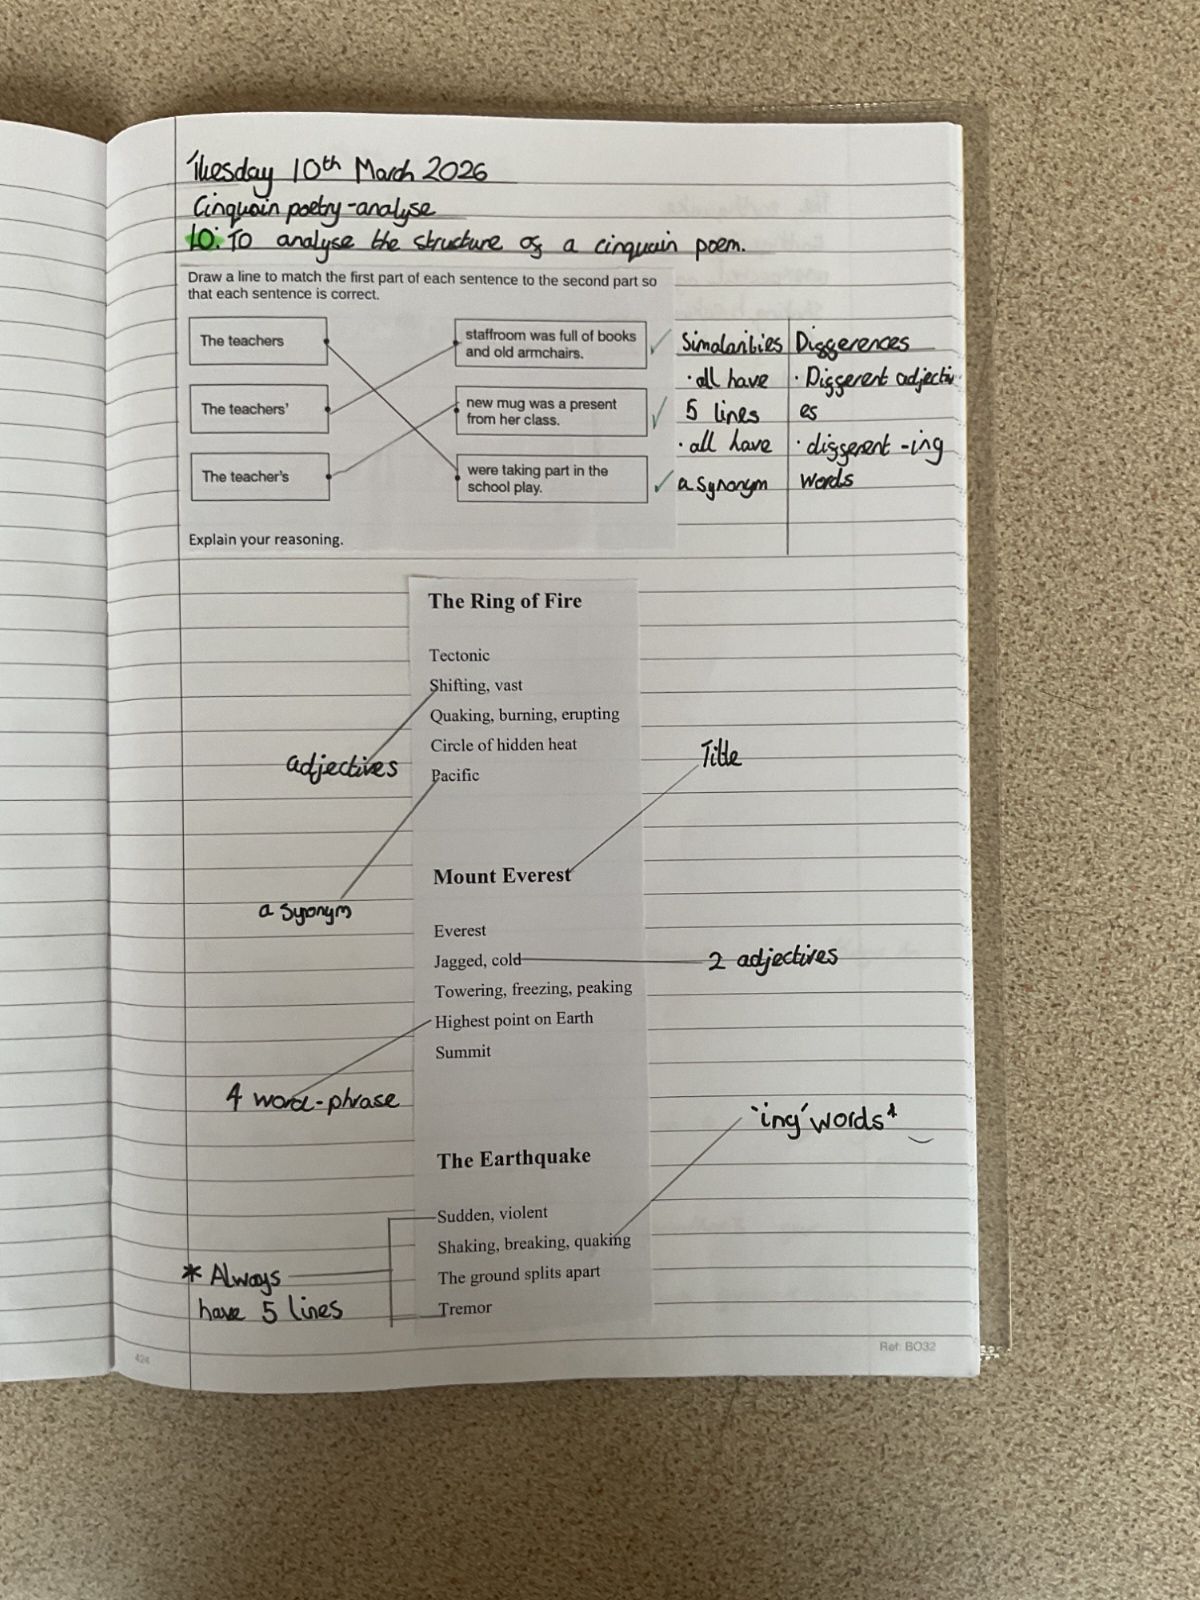 Tuesday 10th March 2026
Cinquain poetry-analyse
LO: To analyse the structure of a cinquain poem.
Draw a line to match the first part of each sentence to the second part so
that each sentence is correct.
The teachers
The teachers'
The teacher's
staffroom was full of books
and old armchairs.
new mug was a present
from her class.
were taking part in the
school play.
Explain your reasoning.
Simalarities
· all have
5 lines
· all have
a synonym
Differences
· Different adjectiv
es
· different -ing
words
The Ring of Fire
Tectonic
Shifting, vast
Quaking, burning, erupting
Circle of hidden heat
Pacific
adjectives
a synonym
Title
Mount Everest
Everest
Jagged, cold
Towering, freezing, peaking
Highest point on Earth
Summit
2 adjectives
4 word-phrase
'ing' words
The Earthquake
Sudden, violent
Shaking, breaking, quaking
The ground splits apart
Tremor
* Always
have 5 lines
424
Ref: BO32